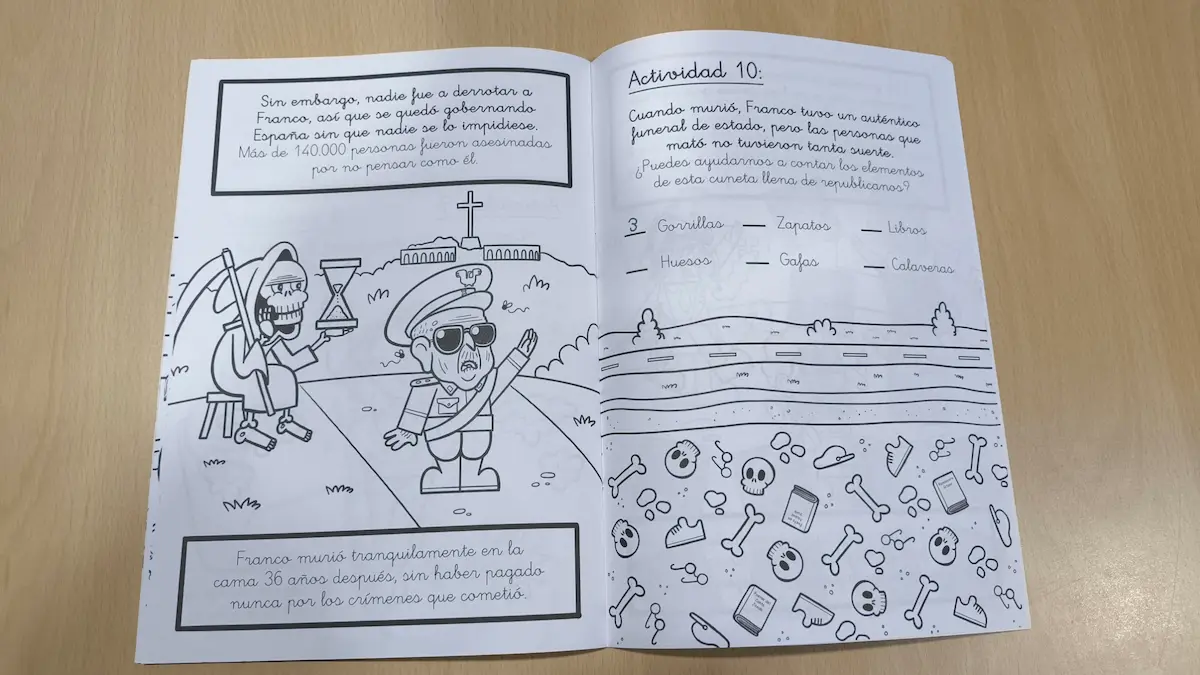 Sin embargo, nadie fue a derrotar a
Franco, así que se quedó gobernando
España sin que nadie se lo impidiese.
Más de 140.000 personas fueron asesinadas
por no pensar como él.
Franco murió tranquilamente en la
cama 36 años después, sin haber pagado
nunca por los crímenes que cometió.
Actividad 10:
Cuando murió, Franco tuvo un auténtico
funeral de estado, pero las personas que
mató no tuvieron tanta suerte.
¿Puedes ayudarnos a contar los elementos
de esta cuneta llena de republicanos?
3 Gorrillas Zapatos Libros
Huesos Gafas Calaveras